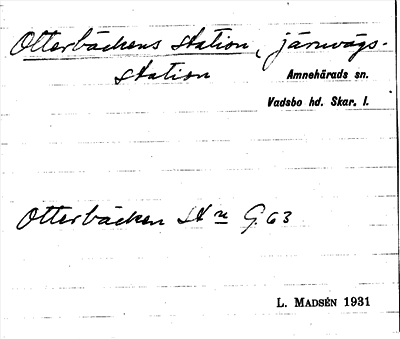 Otterbäckens station, järnvägs-
station
Amnehärads sn.
Vadsbo hd. Skar. l.
Otterbäcken St n G. 63
L. MADSÉN 1931